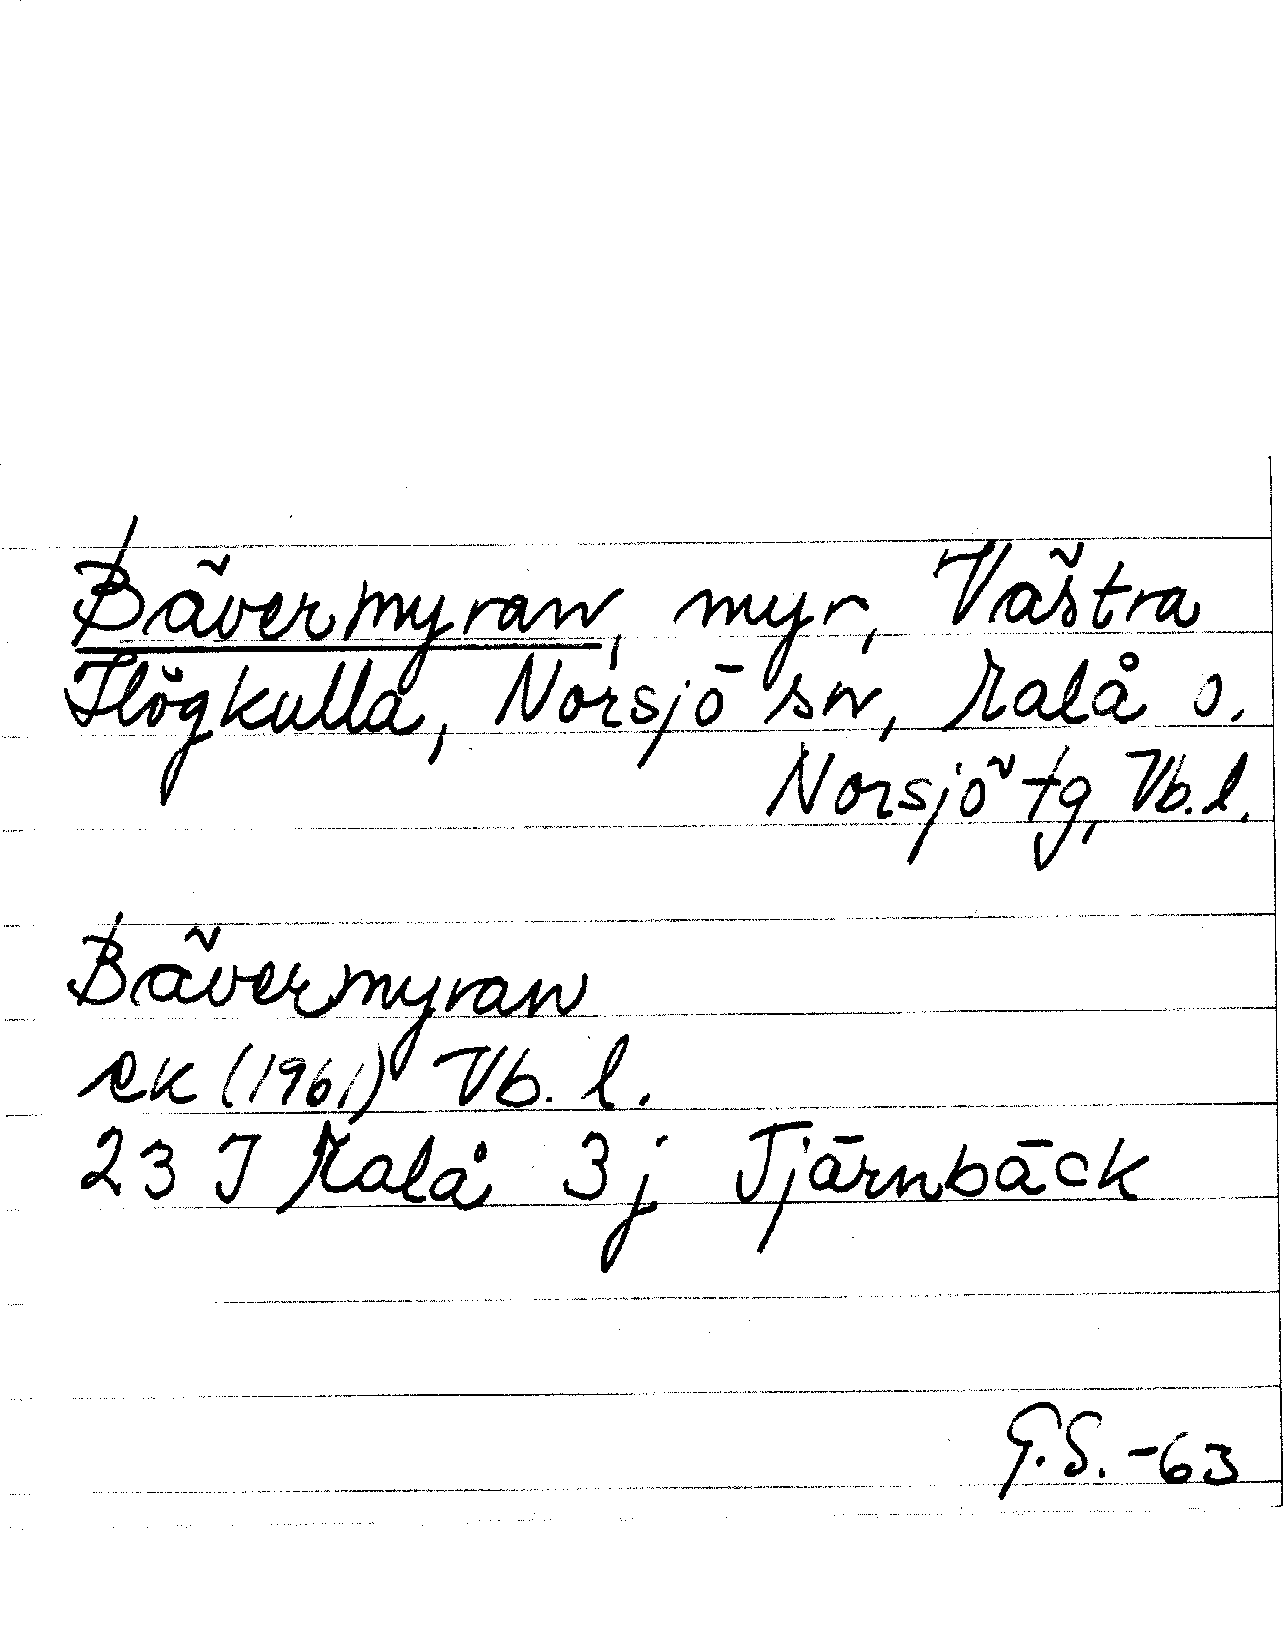 Bävermyran, myr, Västra
Högkulla, Norsjö sn, Malå o.
Norsjö tg, Vb.l.
Bävermyran
ek (1961) Vb. l.
23 J Malå 3j Tjärnbäck
G.S. -63